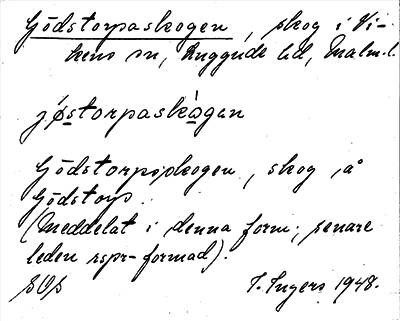 Gödstorpaskogen, skog i Vi-
kens sn, Luggude hd, Malm. l.
jøstorpaskågan
Gödstorpskogen, skog å
Gödstorp.
(Meddelat i denna form; senare
leden rspr-formad).
SOS I. Ingers 1948.